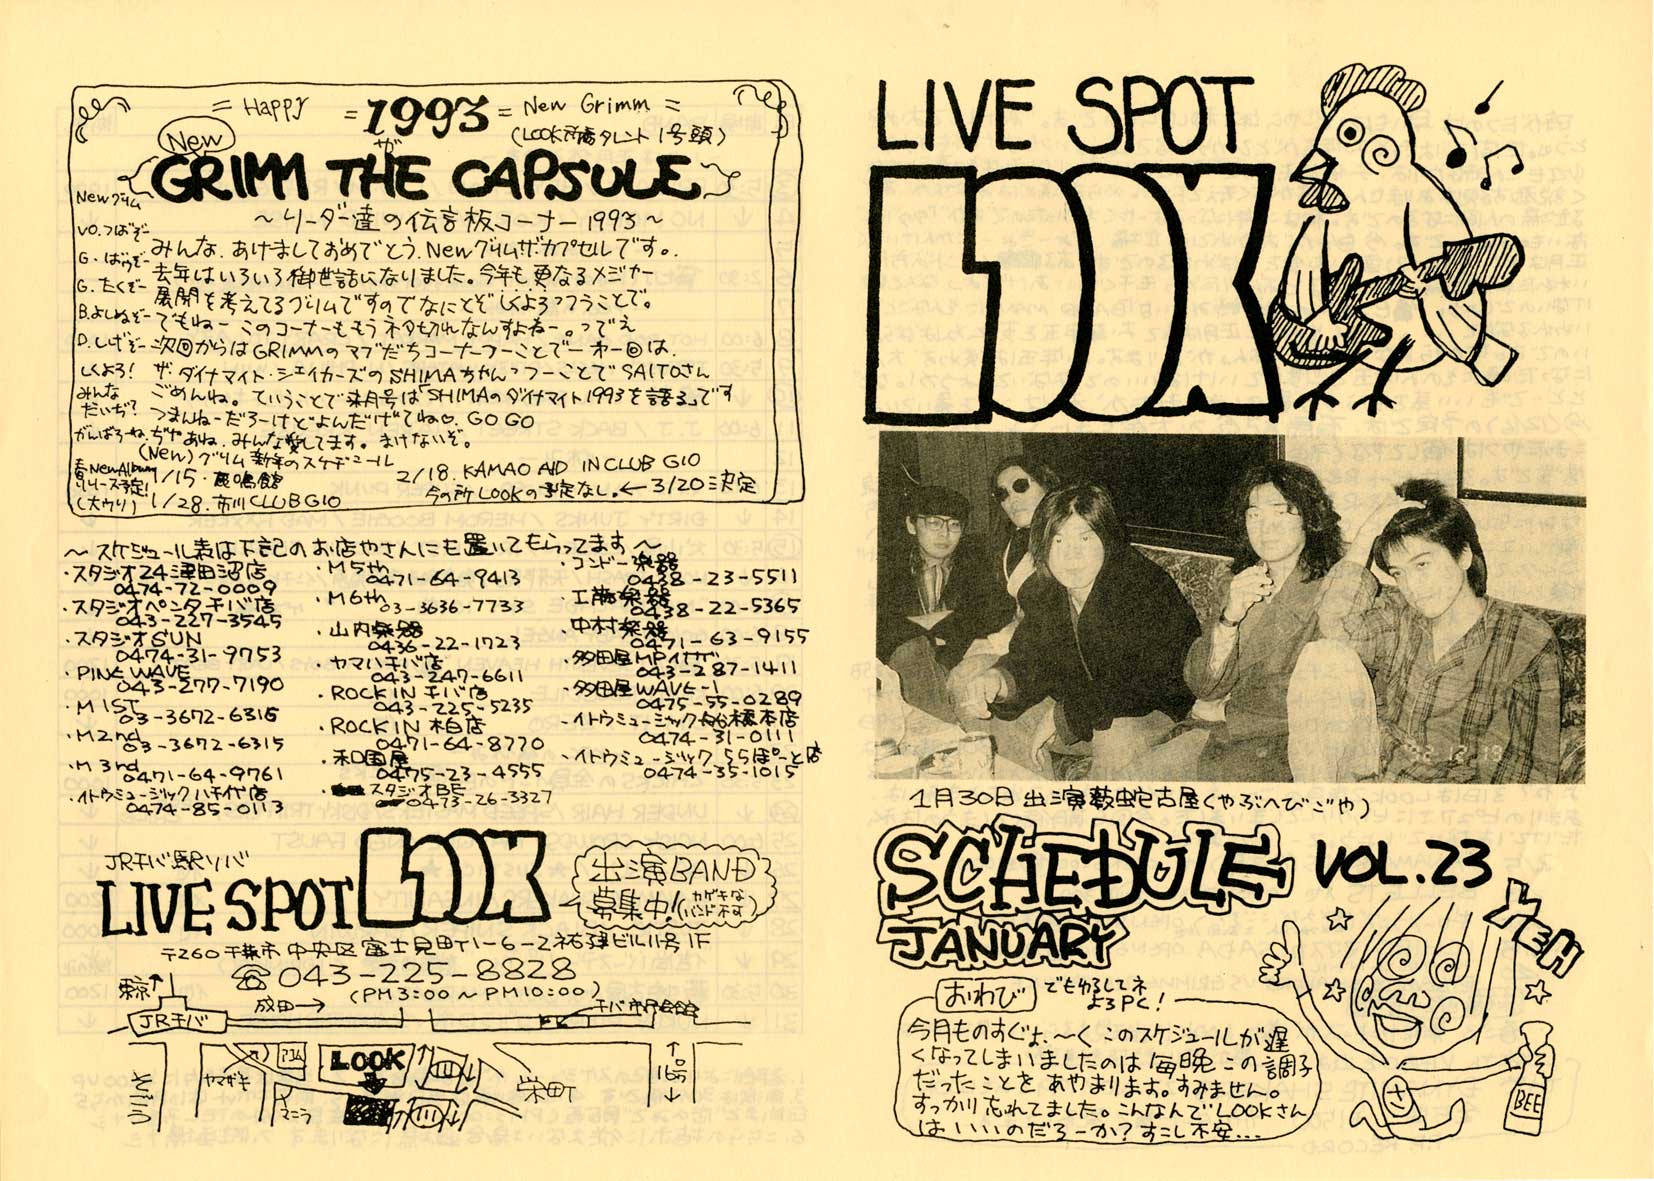 = Happy = 1993 = New Grimm =
(LOOK所属タレント1号頭)
New
ザ
GRIMM THE CAPSULE
〜リーダー達の伝言板コーナー1993〜
Newグリム
vo.つばぞー
G.ばうぞー
G.たくぞー
B.よしぬぞー
D.しげぞー
しくよろ!
みんな
だいぢ?
がんばろーね。
みんな、あけましておめでとう。Newグリムザ・カプセルです。
去年はいろいろ御世話になりました。今年も更なるメジャー
展開を考えてるグリムですのでなにとぞしくよろっつうことで。
でもねー このコーナーももうネタ切れなんすよねー。っでえ
次回からはGRIMMのマブだちコーナーつーことで一オー回は、
ザ・ダイナマイト・シェイカーズのSHIMAちゃんっつーことでSAITOさん
ごめんね。ていうことで来月号は「SHIMAのダイナマイト1993を語る」です
つまんねーだろーけどよんだげてね♡. GO GO
ぢゃあね。みんな愛してます。まけないぞ。
(New)グリム新年のスケヂュール
春NewAlbum
リリース予定!
(大ウソ)
1/15・鹿鳴館
1/28.市川CLUB GIO
2/18. KAMAO AID IN CLUB GIO
今の所LOOKの予定なし。←3/20決定
〜スケジュール表は下記のお店やさんにも置いてもらってます〜
・スタジオ24津田沼店
0474-72-0009
・スタジオペンタ千バ店
043-227-3545
・スタジオSUN
0474-31-9753
・PINE WAVE
043-277-7190
・M 1ST
03-3672-6315
・M 2nd
03-3672-6315
・M 3rd
0471-64-9761
・イトウミュージック八千代店
0474-85-0113
・M 5th
0471-64-9413
・M 6th
03-3636-7733
・山内楽器
0436-22-1723
・ヤマハ千バ店
043-247-6611
・ROCK IN 千バ店
043-225-5235
・ROCK IN 柏店
0471-64-8770
・和国屋
0475-23-4555
・スタジオBE
0473-26-3327
・コンドー楽器
0438-23-5511
・工藤楽器
0438-22-5365
・中村楽器
0471-63-9155
・多田屋MPイザザ
043-287-1411
・多田屋WAVE-1
0475-55-0289
・イトウミュージック船橋本店
0474-31-0111
・イトウミュージックららぽーと店
0474-35-1015
JRチバ駅ソバ
LIVE SPOT LOOK
出演BAND
募集中!(カゲキなバンド不可)
〒260 千葉市中央区富士見町1-6-2 祐津ビル11号1F
☎043-225-8828
(PM 3:00〜PM 10:00)
東京↑
JRチバ
成田→
千バ市民会館
LOOK
ヤマザキ
マニラ
栄町
↑16号↓
LIVE SPOT
LOOK
'92 12 13
1月30日出演藪蛇古屋(やぶへびごや)
SCHEDULE VOL.23
JANUARY
YEH
BEE
おわび でもゆるしてネ
よろPC!
今月ものすぐょ、〜くこのスケジュールが遅
くなってしまいましたのは毎晩この調子
だったことをあやまります。すみません。
すっかり忘れてました。こんなんでLOOKさん
はいいのだろーか?すこし不安...